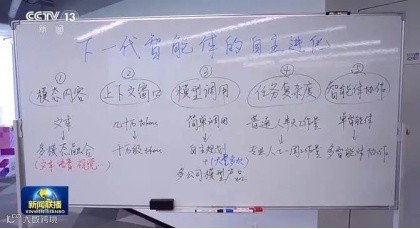 CCTV 13
下一代智能体的自主进化
① ② ③ ④ ⑤
模态内容 上下文窗口 模型调用 任务复杂度 智能体协作
文本 几十万tokens 简单调用 普通人半天工作量 单智能体
多模态融合 千万级tokens 自主规划 专业人士一周工作量 多智能体协作
(文本、语音、视觉) +(大量多次)
多公司模型产品
新闻联播
XINWEN LIANBO
大数跨境